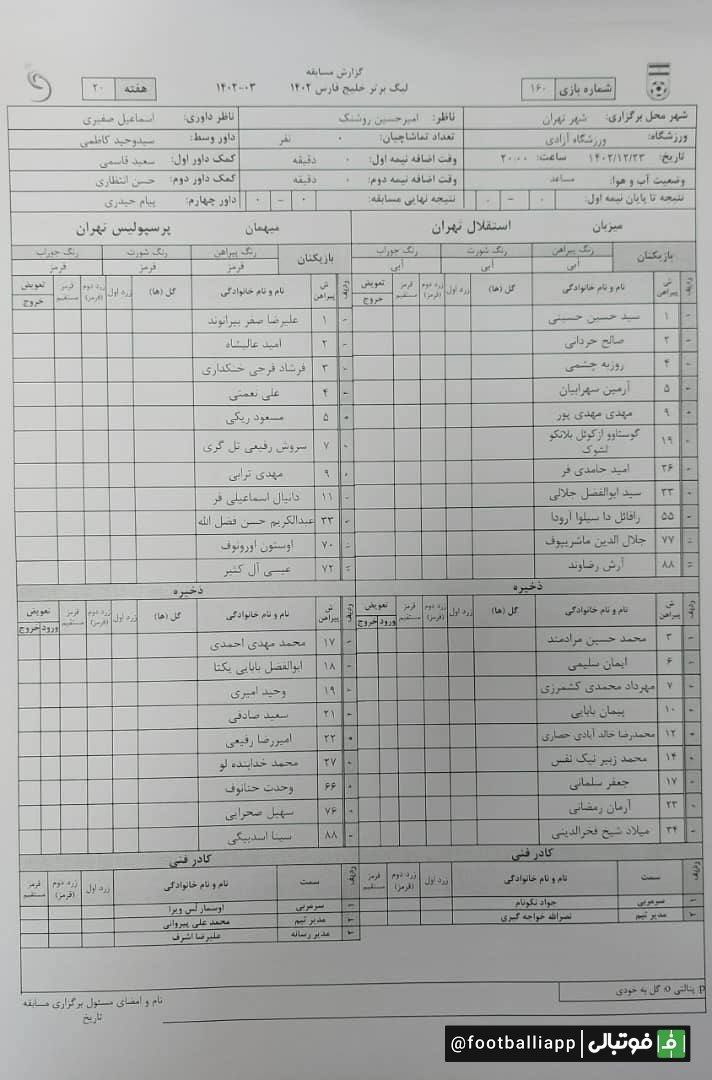 گزارش مسابقه
شماره بازی ۱۶۰
لیگ برتر خلیج فارس ۱۴۰۲
۱۴۰۲-۰۳
هفته ۲۰
شهر محل برگزاری: شهر تهران
ناظر: امیرحسین روشنک
ناظر داوری: اسماعیل صفیری
ورزشگاه: ورزشگاه آزادی
تعداد تماشاچیان: ۰ نفر
داور وسط: سیدوحید کاظمی
تاریخ: ۱۴۰۲/۱۲/۲۳ ساعت: ۲۰:۰۰
وقت اضافه نیمه اول: ۰ دقیقه
کمک داور اول: سعید قاسمی
وضعیت آب و هوا: مساعد
وقت اضافه نیمه دوم: ۰ دقیقه
کمک داور دوم: حسن انتظاری
نتیجه تا پایان نیمه اول: ۰ - ۰
نتیجه نهایی مسابقه: ۰ - ۰
داور چهارم: پیام حیدری
میزبان استقلال تهران
بازیکنان رنگ پیراهن رنگ شورت رنگ جوراب
آبی آبی آبی
ردیف ش پیراهن نام و نام خانوادگی گل (ها) زرد اول زرد دوم (قرمز) قرمز مستقیم تعویض خروج
- ۱ سید حسین حسینی
- ۲ صالح حردانی
- ۴ روزبه چشمی
- ۵ آرمین سهرابیان
- ۹ مهدی مهدی پور
- ۱۹ گوستاوو ازکوئل بلانکو
لشوک
- ۲۶ امید حامدی فر
- ۳۳ سید ابوالفضل جلالی
- ۵۵ رافائل دا سیلوا آرودا
- ۷۷ جلال الدین ماشریپوف
- ۸۸ آرش رضاوند
ذخیره
ردیف ش پیراهن نام و نام خانوادگی گل (ها) زرد اول زرد دوم (قرمز) قرمز مستقیم تعویض ورود خروج
- ۳ محمد حسین مرادمند
- ۶ ایمان سلیمی
- ۷ مهرداد محمدی کشمرزی
- ۱۰ پیمان بابایی
- ۱۲ محمدرضا خالد آبادی حصاری
- ۱۴ محمد زبیر نیک نفس
- ۱۷ جعفر سلمانی
- ۲۳ آرمان رمضانی
- ۳۴ میلاد شیخ فخرالدینی
کادر فنی
ردیف سمت نام و نام خانوادگی زرد اول زرد دوم (قرمز) قرمز مستقیم
۱ سرمربی جواد نکونام
۲ مدیر تیم نصرالله خواجه گیری
میهمان پرسپولیس تهران
بازیکنان رنگ پیراهن رنگ شورت رنگ جوراب
قرمز قرمز قرمز
ردیف ش پیراهن نام و نام خانوادگی گل (ها) زرد اول زرد دوم (قرمز) قرمز مستقیم تعویض خروج
- ۱ علیرضا صفر بیرانوند
- ۲ امید عالیشاه
- ۳ فرشاد فرجی خنکداری
- ۴ علی نعمتی
- ۵ مسعود ریگی
- ۷ سروش رفیعی تل گری
- ۹ مهدی ترابی
- ۱۱ دانیال اسماعیلی فر
- ۳۳ عبدالکریم حسن فضل الله
- ۷۰ اوستون اورونوف
- ۷۲ عیسی آل کثیر
ذخیره
ردیف ش پیراهن نام و نام خانوادگی گل (ها) زرد اول زرد دوم (قرمز) قرمز مستقیم تعویض ورود خروج
- ۱۷ محمد مهدی احمدی
- ۱۸ ابوالفضل بابایی یکتا
- ۱۹ وحید امیری
- ۲۱ سعید صادقی
- ۲۲ امیررضا رفیعی
- ۲۷ محمد خدابنده لو
- ۶۶ وحدت حنانوف
- ۷۶ سهیل صحرایی
- ۸۸ سینا اسدبیگی
کادر فنی
ردیف سمت نام و نام خانوادگی زرد اول زرد دوم (قرمز) قرمز مستقیم
۱ سرمربی اوسمار لس ویرا
۲ مدیر تیم محمد علی پیروانی
۳ مدیر رسانه علیرضا اشرف
p: پنالتی o: گل به خودی
نام و امضای مسئول برگزاری مسابقه
تاریخ
@footballiapp فوتبالی